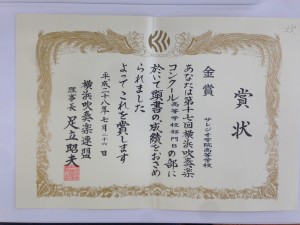 賞状
金賞
サレジオ学院高等学校
あなたは第十七回横浜吹奏楽
コンクール高等学校部門Bの部に
於いて頭書の成績をおさめ
られました
よってこれを賞します
平成二十八年七月二十六日
横浜吹奏楽連盟
理事長 足立昭夫